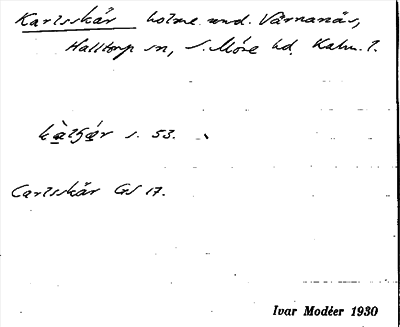 Karlsskär holme und. Värnanäs,
Halltorp sn, S. Möre hd. Kalm. l.
s. 53.
Carlsskär GS 17.
Ivar Modéer 1930